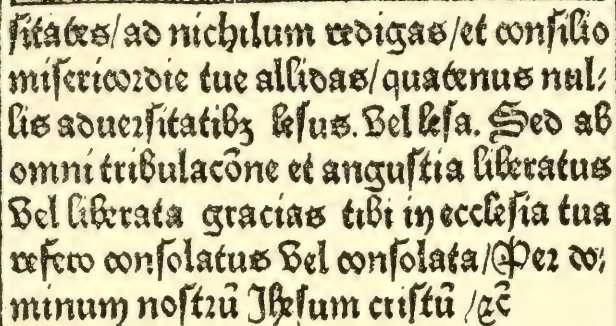 sitates/ad nichilum redigas/et consilio
misericordie tue allidas/quatenus nul⸗
lis aduersitatibꝫ lesus. Vel lesa. Sed ab
omni tribulacōne et angustia liberatus
Vel liberata gracias tibi in ecclesia tua
refero consolatus Vel consolata/Per do⸗
minum nostrū Jhesum cristū /⁊c̄